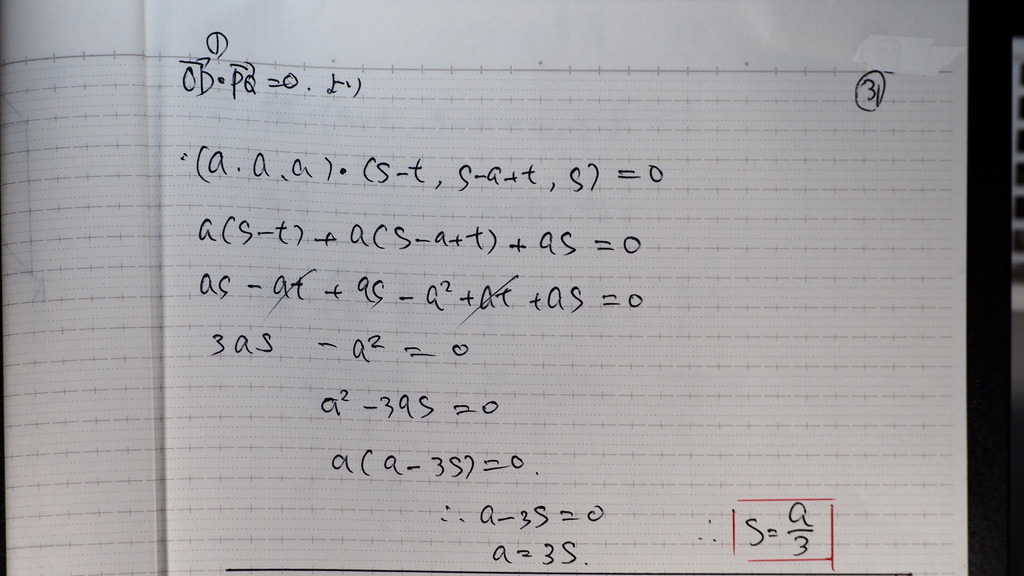 ①
OD・PQ=0. より
③
・(a.a、a)・(s-t, s-a+t, s)=0
a(s-t)+a(s-a+t)+as=0
as-at+as-a²+at+as=0
3as -a²=0
a²-3as=0
a(a-3s)=0.
∴ a-3s=0
a=3s.
∴ s=a/3